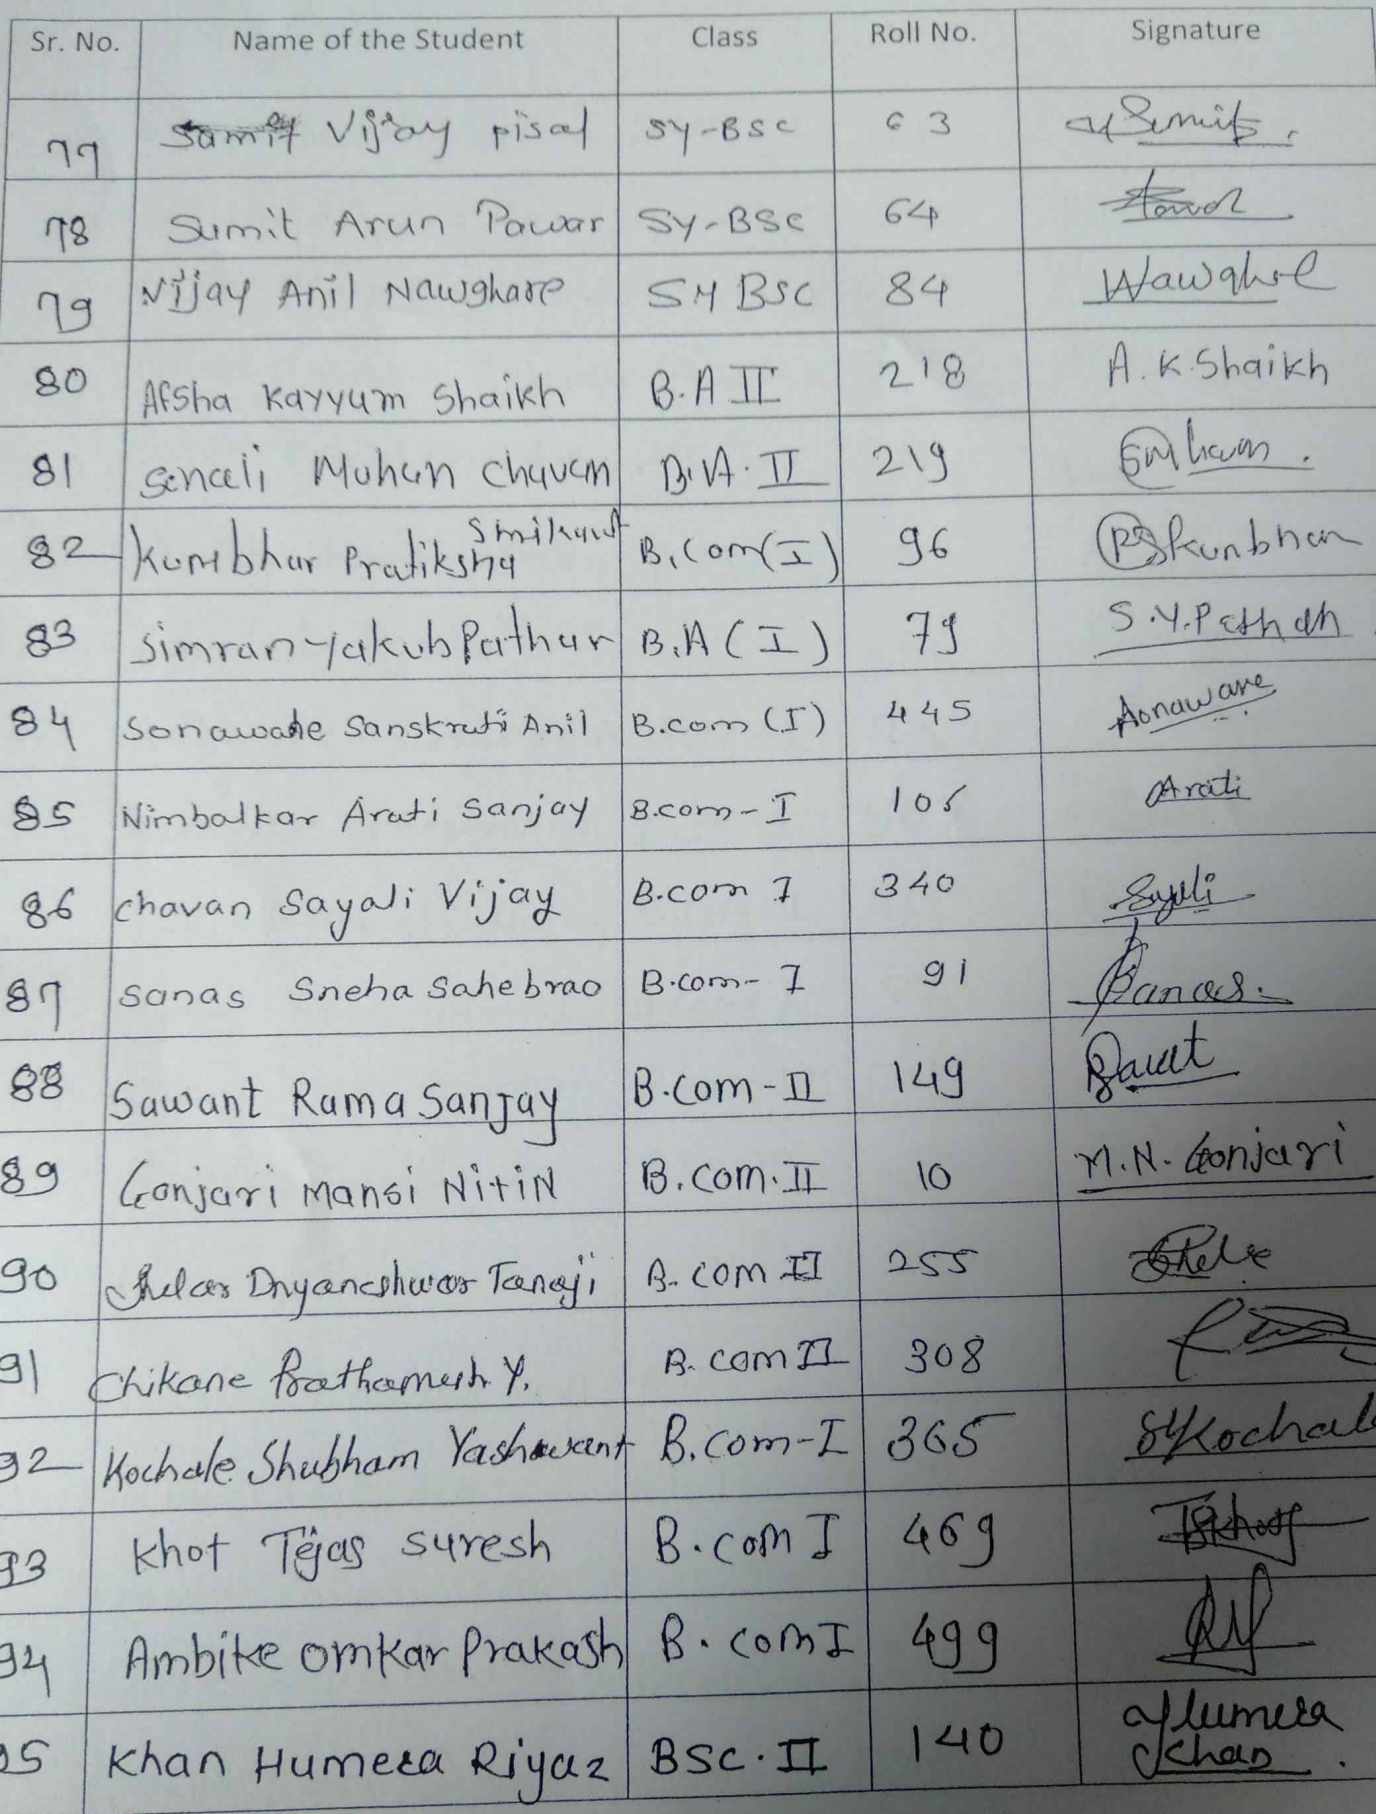 Sr. No. Name of the Student Class Roll No. Signature
77 Sumit Vijay pisal SY-BSC 63 Sumit
78 Sumit Arun Pawar SY-BSC 64
79 Vijay Anil Nawghare SY BSC 84
80 Afsha Kayyum Shaikh B.A II 218 A.K.Shaikh
81 Sonali Mohan Chavan B.A. II 219
82 Kumbhar Pratiksha B.Com(I) 96
83 Simran Yakub Pathan B.A (I) 79 S.Y.Pathan
84 Sonawane Sanskruti Anil B.com (I) 445 Sonaware
85 Nimbalkar Arati Sanjay B.com-I 105 Arati
86 Chavan Sayali Vijay B.com I 340 Sayali
87 Sanas Sneha Sahebrao B.com-I 91 Sanas.
88 Sawant Rama Sanjay B.com-II 149
89 Gonjari Mansi NitiN B.com.II 10 M.N. Gonjari
90 Shelar Dnyaneshwar Tanaji B.com II 255
91 Chikane Prathamesh Y. B.com II 308
92 Kochale Shubham Yashwant B.com-I 365 SYKochale
93 Khot Tejas suresh B.com I 469 TSKhot
94 Ambike omkar Prakash B.com I 499
95 Khan Humera Riyaz BSC.II 140 Humera
Khan.